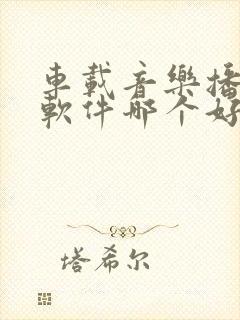 車載音樂播
軟件哪个好
塔希尔